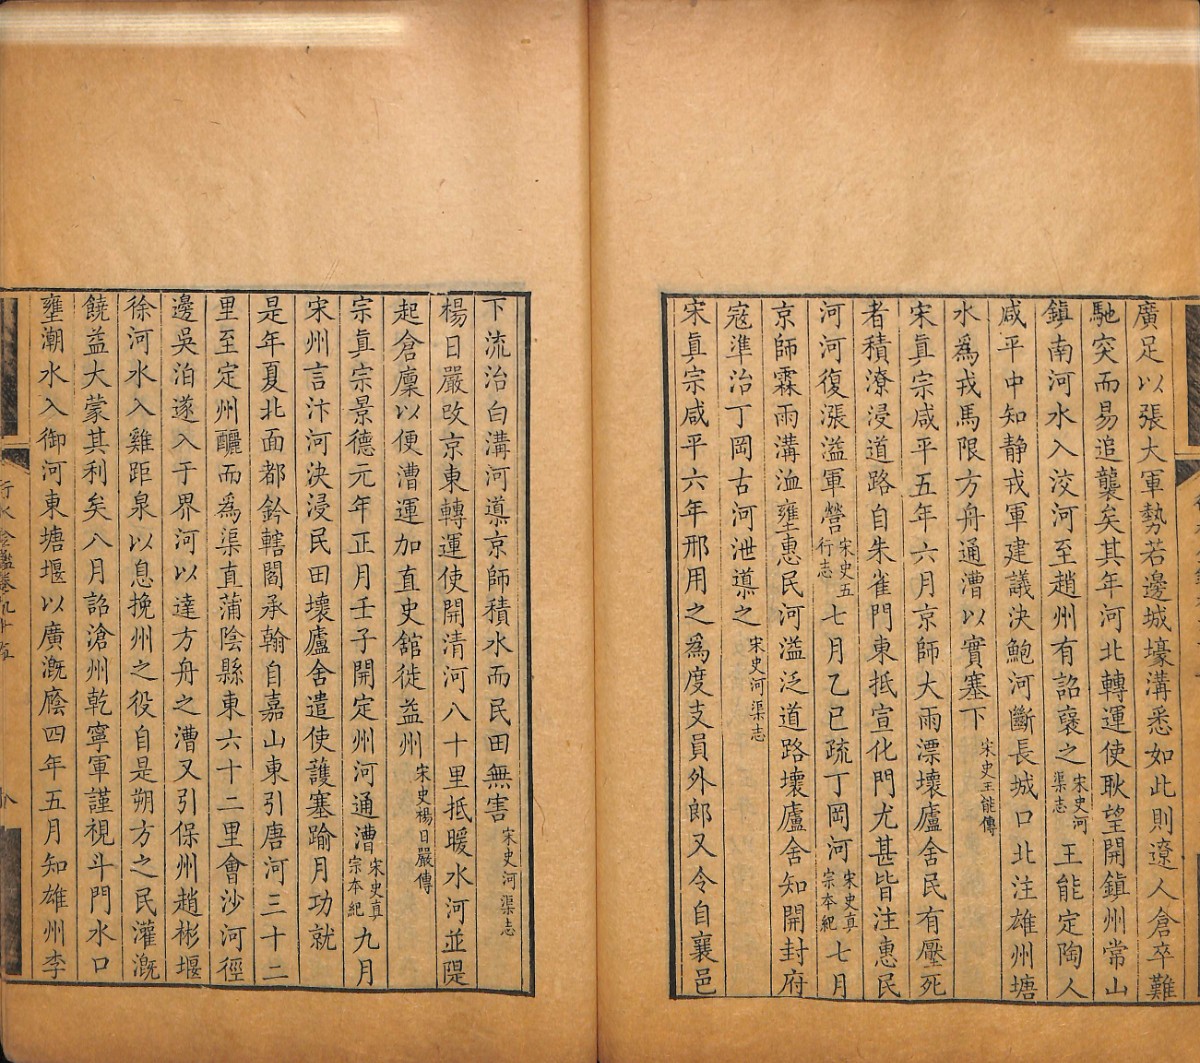 廣足以張大軍勢若邊城壕溝悉如此則遼人倉卒難
馳突而易追襲矣其年河北轉運使耿望開鎮州常山
鎮南河水入洨河至趙州有詔襃之宋史河渠志王能定陶人
咸平中知靜戎軍建議決鮑河斷長城口北注雄州塘
水為戎馬限方舟通漕以實塞下宋史王能傳
宋真宗咸平五年六月京師大雨漂壞廬舍民有壓死
者積潦浸道路自朱雀門東抵宣化門尤甚皆注惠民
河河復漲溢軍營宋史五行志七月乙巳疏丁岡河宋史真宗本紀七月
京師霖雨溝洫壅惠民河溢泛道路壞廬舍知開封府
寇準治丁岡古河泄導之宋史河渠志
宋真宗咸平六年邢用之為度支員外郎又令自襄邑
下流治白溝河導京師積水而民田無害宋史河渠志
楊日嚴改京東轉運使開清河八十里抵暖水河並隄
起倉廩以便漕運加直史館徙益州宋史楊日嚴傳
宗真宗景德元年正月壬子開定州河通漕宋史真宗本紀九月
宋州言汴河決浸民田壞廬舍遣使護塞踰月功就
是年夏北面都鈐轄閻承翰自嘉山東引唐河三十二
里至定州釃而為渠直蒲陰縣東六十二里會沙河徑
邊吳泊遂入于界河以達方舟之漕又引保州趙彬堰
徐河水入雞距泉以息挽州之役自是朔方之民灌溉
饒益大蒙其利矣八月詔滄州乾寧軍謹視斗門水口
壅潮水入御河東塘堰以廣溉廕四年五月知雄州李